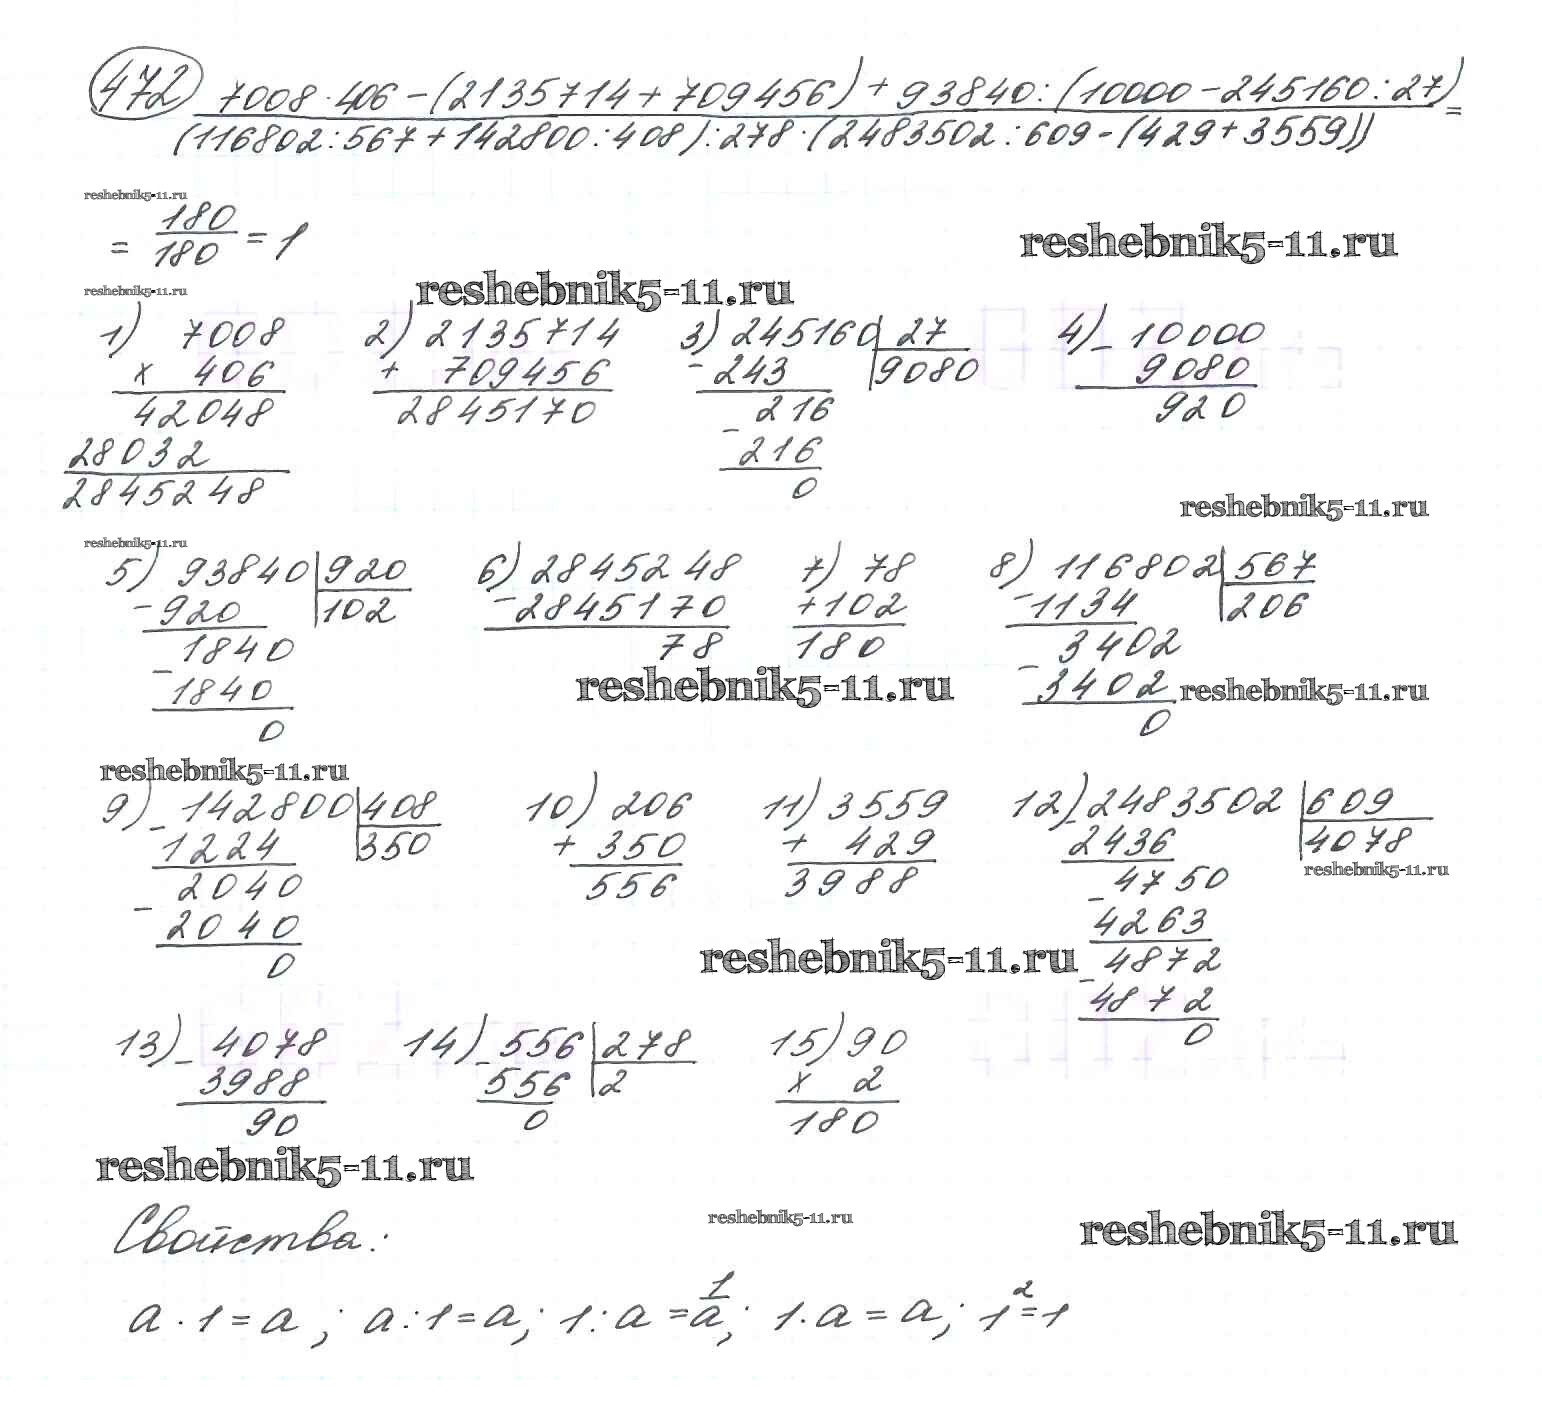 472 7008·406-(2135714+709456)+93840:(10000-245160:27)
(116802:567+142800:408):278·(2483502:609-(429+3559)) =
reshebnik5-11.ru
= 180/180 = 1
reshebnik5-11.ru
reshebnik5-11.ru
reshebnik5-11.ru
1) 7008 2) 2135714 3) 245160 27 4) - 10000
x 406 + 709456 - 243 9080 9080
42048 2845170 216 920
28032 - 216
2845248 0
reshebnik5-11.ru
reshebnik5-11.ru
5) 93840 920 6) 2845248 7) 78 8) 116802 567
- 920 102 - 2845170 +102 - 1134 206
1840 78 180 3402
- 1840 - 3402
0 0
reshebnik5-11.ru
reshebnik5-11.ru
reshebnik5-11.ru
9) - 142800 408 10) 206 11) 3559 12) - 2483502 609
1224 350 + 350 + 429 2436 4078
2040 556 3988 - 4750
- 2040 4263
0 - 4872
4872
0
reshebnik5-11.ru
reshebnik5-11.ru
13) - 4078 14) - 556 278 15) 90
3988 556 2 x 2
90 0 180
reshebnik5-11.ru
reshebnik5-11.ru
reshebnik5-11.ru
Свойства:
a · 1 = a ; a : 1 = a; 1 : a = 1/a; 1·a = a; 1² = 1